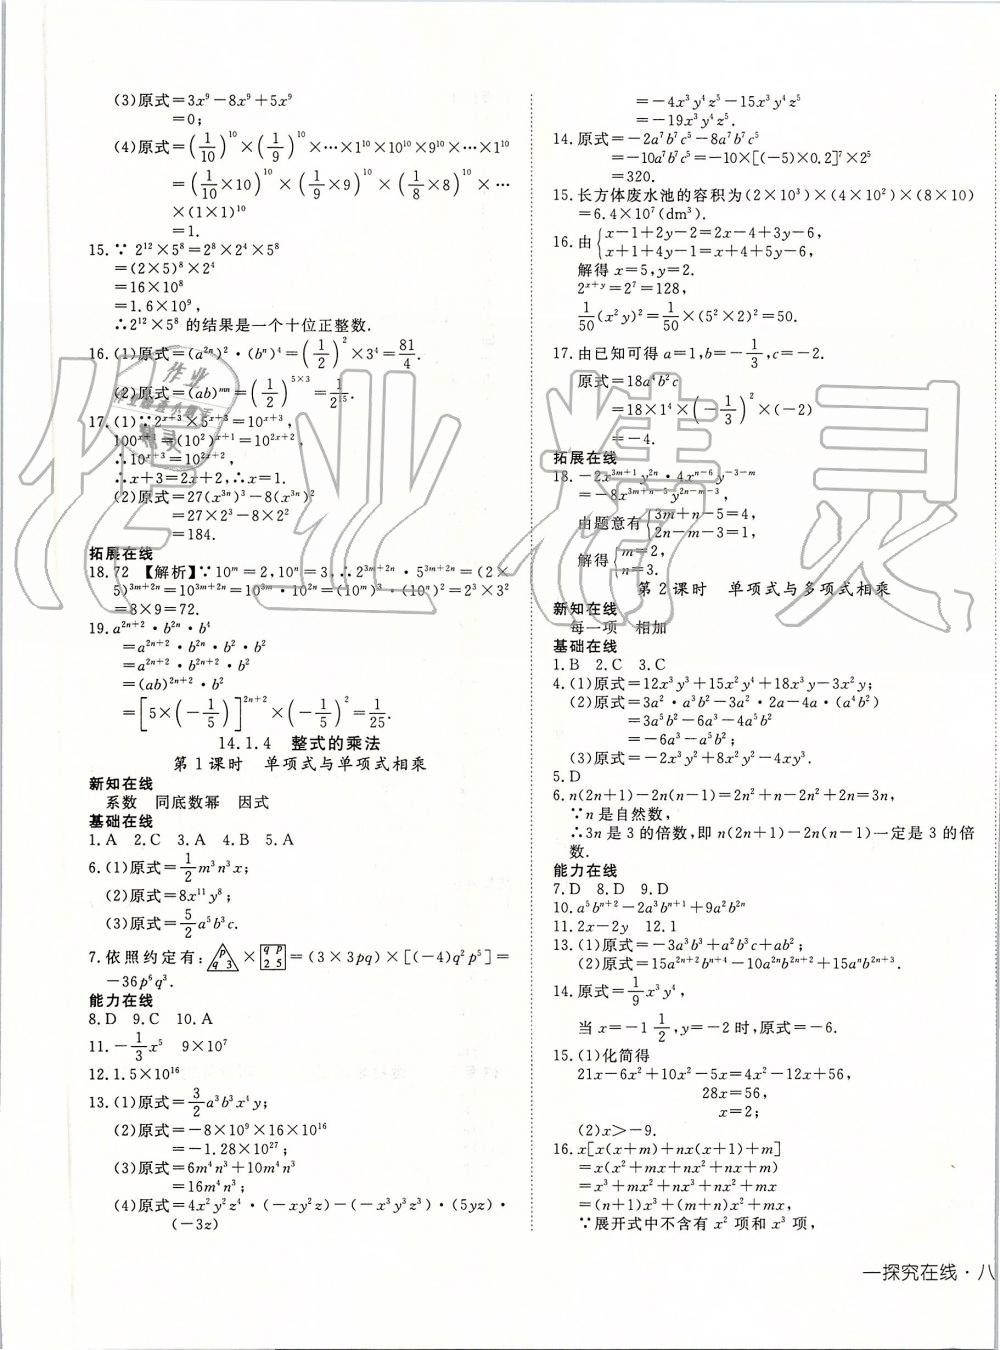 (3)原式=3x⁹-8x⁹+5x⁹
=0;
(4)原式=(1/10)¹⁰×(1/9)¹⁰×…×1¹⁰×10¹⁰×9¹⁰×…×1¹⁰
=(1/10×10)¹⁰×(1/9×9)¹⁰×(1/8×8)¹⁰×…
×(1×1)¹⁰
=1.
15.∵ 2¹²×5⁸=2⁸×2⁴×5⁸
=(2×5)⁸×2⁴
=16×10⁸
=1.6×10⁹,
∴2¹²×5⁸ 的结果是一个十位正整数.
16.(1)原式=(a²ⁿ)²·(bⁿ)⁴=(1/2)²×3⁴=81/4.
(2)原式=(ab)ᵐⁿ=(1/2)⁵ˣ³=1/2¹⁵.
17.(1)∵2ˣ⁺³×5ˣ⁺³=10ˣ⁺³,
100ˣ⁺¹=(10²)ˣ⁺¹=10²ˣ⁺².
∴10ˣ⁺³=10²ˣ⁺²,
∴x+3=2x+2,∴x=1.
(2)原式=27(x³ⁿ)³-8(x³ⁿ)²
=27×2³-8×2²
=184.
拓展在线
18.72 【解析】∵10ᵐ=2,10ⁿ=3,∴2³ᵐ⁺²ⁿ·5³ᵐ⁺²ⁿ=(2×
5)³ᵐ⁺²ⁿ=10³ᵐ⁺²ⁿ=10³ᵐ·10²ⁿ=(10ᵐ)³·(10ⁿ)²=2³×3²
=8×9=72.
19.a²ⁿ⁺²·b²ⁿ·b⁴
=a²ⁿ⁺²·b²ⁿ·b²·b²
=a²ⁿ⁺²·b²ⁿ⁺²·b²
=(ab)²ⁿ⁺²·b²
=[5×(-1/5)]²ⁿ⁺²×(-1/5)²=1/25.
14.1.4 整式的乘法
第1课时 单项式与单项式相乘
新知在线
系数 同底数幂 因式
基础在线
1.A 2.C 3.A 4.B 5.A
6.(1)原式=1/2m³n³x;
(2)原式=8x¹¹y⁸;
(3)原式=5/2a⁵b³c.
7.依照约定有: p q 3 × q p 2 5 =(3×3pq)×[(-4)q²p⁵]=
-36p⁶q³.
能力在线
8.D 9.C 10.A
11.-1/3x⁵ 9×10⁷
12.1.5×10¹⁶
13.(1)原式=3/2a³b³x⁴y;
(2)原式=-8×10⁹×16×10¹⁶
=-1.28×10²⁷;
(3)原式=6m⁴n³+10m⁴n³
=16m⁴n³;
(4)原式=4x²y²z⁴·(-xy²z)-(-x³y³z³)·(5yz)·
(-3z)
=-4x³y⁴z⁵-15x³y⁴z⁵
=-19x³y⁴z⁵.
14.原式=-2a⁷b⁷c⁵-8a⁷b⁷c⁵
=-10a⁷b⁷c⁵=-10×[(-5)×0.2]⁷×2⁵
=320.
15.长方体废水池的容积为(2×10³)×(4×10²)×(8×10)
=6.4×10⁷(dm³).
16.由{x-1+2y-2=2x-4+3y-6,
x+1+4y-1=x+4+5y-6,
解得 x=5,y=2.
2ˣ⁺ʸ=2⁷=128,
1/50(x²y)²=1/50×(5²×2)²=50.
17.由已知可得 a=1,b=-1/3,c=-2.
原式=18a⁴b²c
=18×1⁴×(-1/3)²×(-2)
=-4.
拓展在线
18.-2x³ᵐ⁺¹y²ⁿ·4xⁿ⁻⁶y⁻³⁻ᵐ
=-8x³ᵐ⁺ⁿ⁻⁵y²ⁿ⁻ᵐ⁻³,
由题意有{3m+n-5=4,
2n-m-3=1,
解得{m=2,
n=3.
第2课时 单项式与多项式相乘
新知在线
每一项 相加
基础在线
1.B 2.C 3.C
4.(1)原式=12x³y³+15x²y⁴+18x³y-3x²y;
(2)原式=3a²·a³b²-3a²·2a-4a·(a⁴b²)
=3a⁵b²-6a³-4a⁵b²
=-6a³-a⁵b²;
(3)原式=-2x³y²+8x²y²-4xy³.
5.D
6.n(2n+1)-2n(n-1)=2n²+n-2n²+2n=3n,
∵n 是自然数,
∴3n 是 3 的倍数,即 n(2n+1)-2n(n-1)一定是 3 的倍
数.
能力在线
7.D 8.D 9.D
10.a⁵bⁿ⁺²-2a³bⁿ⁺¹+9a²b²ⁿ
11.2x-2y 12.1
13.(1)原式=-3a³b³+a²b³c+ab²;
(2)原式=15a²ⁿ⁺²bⁿ⁺⁴-10a²ⁿb²ⁿ⁺²+15aⁿb²ⁿ⁺³.
14.原式=1/9x³y⁴,
当 x=-1 1/2,y=-2 时,原式=-6.
15.(1)化简得
21x-6x²+10x²-5x=4x²-12x+56,
28x=56,
x=2;
(2)x>-9.
16.x[x(x+m)+nx(x+1)+m]
=x(x²+mx+nx²+nx+m)
=x³+mx²+nx³+nx²+mx
=(n+1)x³+(m+n)x²+mx
∵展开式中不含有 x² 项和 x³ 项,
一探究在线·八
作业精灵